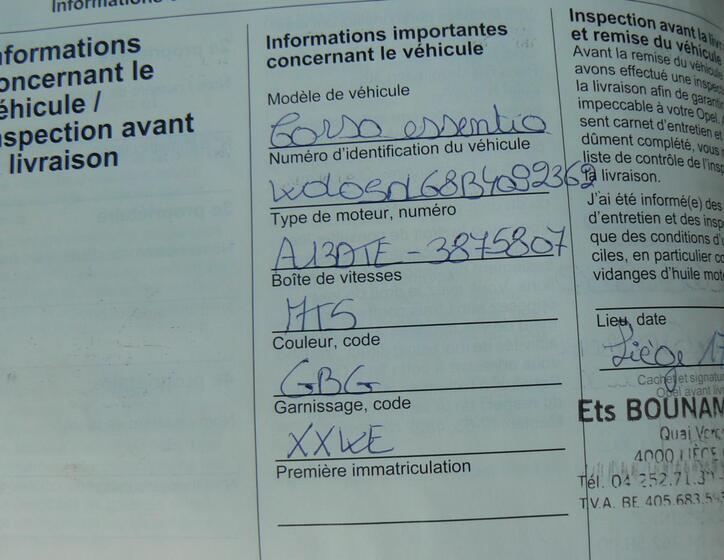 Informations
nformations
oncernant le
éhicule /
nspection avant
livraison
Informations importantes
concernant le véhicule
Modèle de véhicule
Corsa essentia
Numéro d'identification du véhicule
W0L0SDL68B4092362
Type de moteur, numéro
A13DTE - 3875807
Boîte de vitesses
MT5
Couleur, code
GBG
Garnissage, code
XXWE
Première immatriculation
Inspection avant la liv
et remise du véhicule
Avant la remise du véhicu
avons effectué une inspec
la livraison afin de garan
impeccable à votre Opel.
sent carnet d'entretien et
dûment complété, vous
liste de contrôle de l'insp
la livraison.
J'ai été informé(e) des
d'entretien et des insp
que des conditions d'
ciles, en particulier co
vidanges d'huile mot
Lieu, date
Liège 17
Cachet et signatur
Opel avant livr
Ets BOUNAM
Quai
4000 LIÈGE
Tél. 04 252.71.
T.V.A. BE 405.683.5